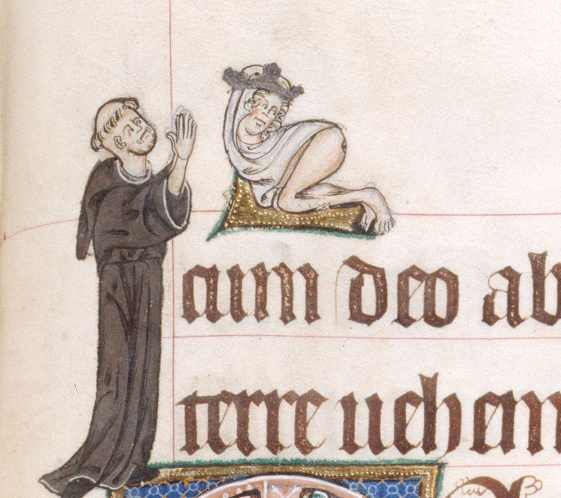 aum deo ab
terre uehem